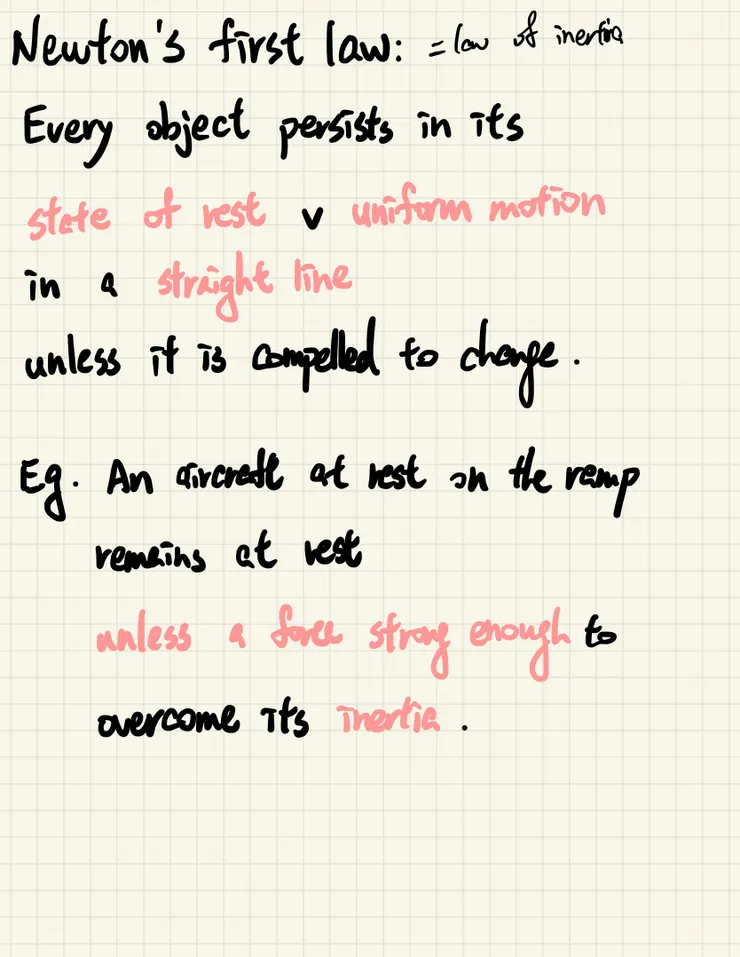 Newton's first law: = law of inertia
Every object persists in its
state of rest v uniform motion
in a straight line
unless it is compelled to change.
Eg. An aircraft at rest on the ramp
remains at rest
unless a force strong enough to
overcome its inertia.